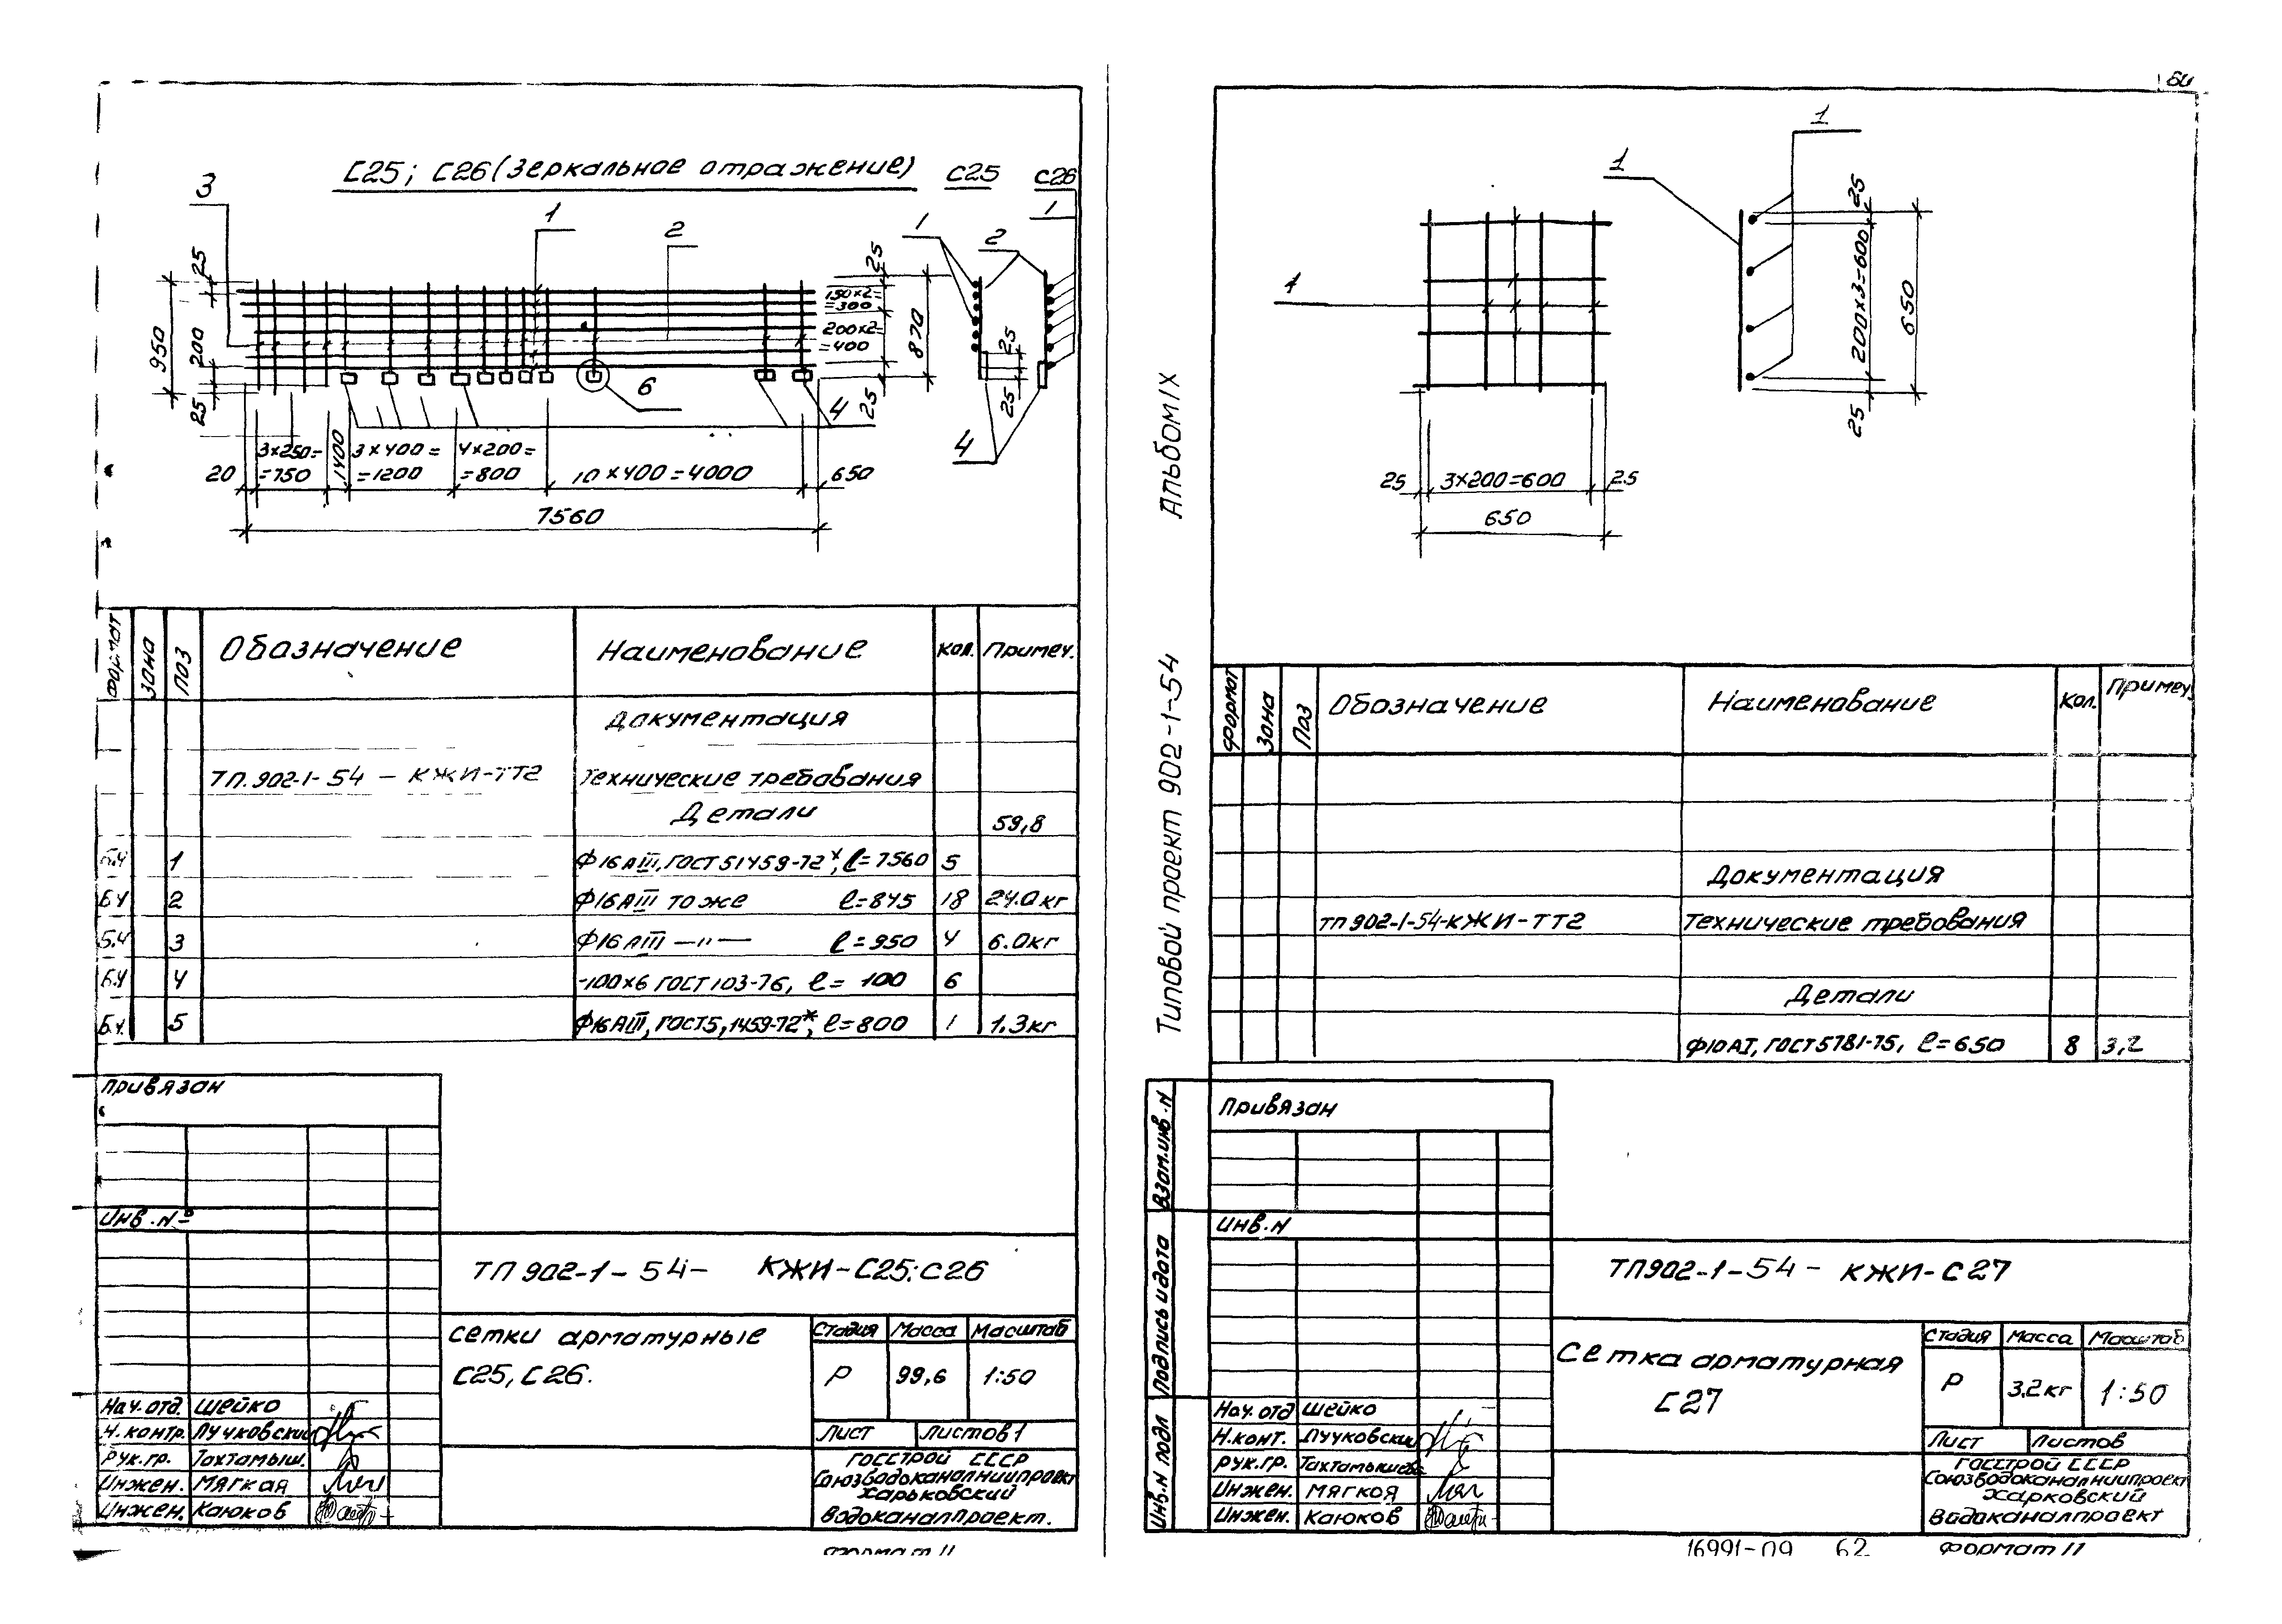 С25; С26 (Зеркальное отражение) С25 С26
3
1
2
1
2
1
25
950
200
25
25
150×2=
=300
200×2=
=400
870
25
25
25
6
4
4
20
3×250=
=750
1400
3×400=
=1200
4×200=
=800
10×400=4000
650
7560
Формат
Зона
Поз
Обозначение
Наименование
Кол.
Примеч.
Документация
ТП.902-1-54-КЖИ-ТТ2 Технические требования
Детали 59,8
Б.Ч 1 Ф16АIII, ГОСТ 51459-72*, ℓ=7560 5
Б.Ч 2 Ф16АIII то же ℓ=845 18 24.0кг
Б.Ч 3 Ф16АIII —"— ℓ=950 4 6.0кг
Б.Ч 4 -100×6 ГОСТ 103-76, ℓ= 100 6
Б.Ч. 5 Ф16АIII, ГОСТ5,1459-72*, ℓ=800 1 1.3кг
Привязан
Инв.№
ТП902-1-54- КЖИ-С25;С26
Сетки арматурные
С25, С26.
Стадия Масса Масштаб
Р 99,6 1:50
Лист Листов 1
Нач.отд. Шейко
Н.контр. Лучковский
Рук.гр. Тахтамыш.
Инжен. Мягкая
Инжен. Каюков
Госстрой СССР
Союзводоканалниипроект
Харьковский
Водоканалпроект.
Формат 11
Альбом IX
Типовой проект 902-1-54
1
1
1
25
200×3=600
650
25
25
3×200=600
25
650
Формат
Зона
Поз
Обозначение
Наименование
Кол.
Примеч.
Документация
ТП902-1-54-КЖИ-ТТ2 Технические требования
Детали
Ф10АI, ГОСТ5781-75, ℓ=650 8 3,2
Взам.инв.N
Подпись и дата
Инв.N подл
Привязан
Инв.N
ТП902-1-54- КЖИ-С27
Сетка арматурная
С27
Стадия Масса Масштаб
Р 3.2кг 1:50
Лист Листов
Нач.отд Шейко
Н.конт. Лучковский
Рук.гр. Тахтамышева
Инжен. Мягкоя
Инжен. Каюков
Госстрой СССР
Союзводоканалниипроект
Харковский
Водоканалпроект
16991-09 62 Формат 11